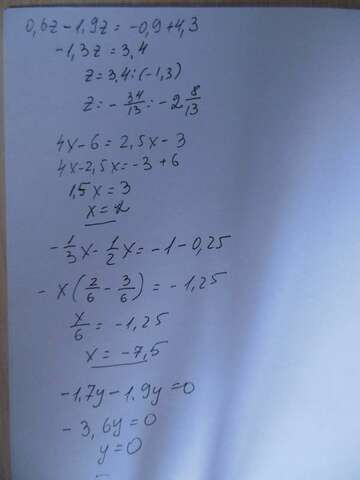 0,6z - 1,9z = -0,9 + 4,3
-1,3z = 3,4
z = 3,4 : (-1,3)
z = - 34/13 = -2 8/13
4x - 6 = 2,5x - 3
4x - 2,5x = -3 + 6
1,5x = 3
x = 2
- 1/3 x - 1/2 x = -1 - 0,25
- x ( 2/6 - 3/6 ) = -1,25
x/6 = -1,25
x = -7,5
-1,7y - 1,9y = 0
-3,6y = 0
y = 0